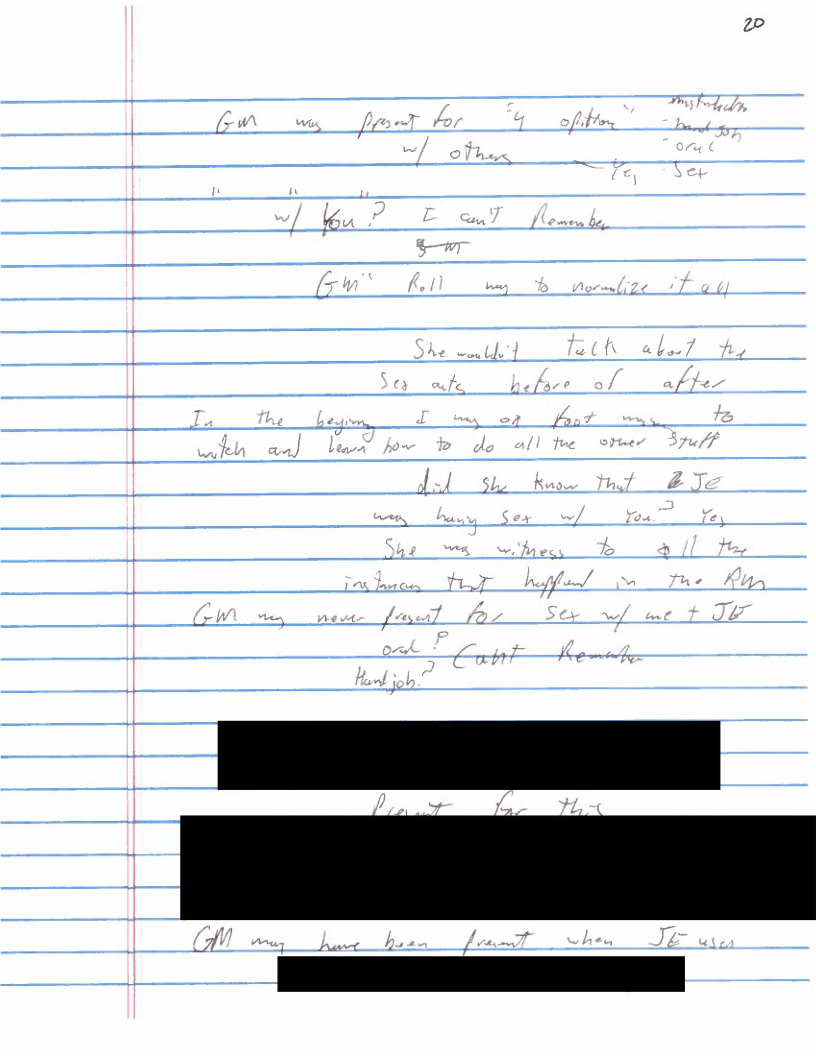 20
GM was present for "4 opition" masturbation
- hand job
w/ others - oral
— Yes - Sex
" " "
w/ You? I can't Remember
GM" Roll was to normalize it all
She wouldn't talk about the
Sex acts before or after
In the beginning I was on foot to
watch and learn how to do all the other stuff
did she know that JE
was having sex w/ You? Yes
She was witness to all the
instances that happend in the Rm
GM was never present for sex w/ me + JE
oral? Cabnt Remember
Hand job?
Present for this
GM may have been present when JE uses